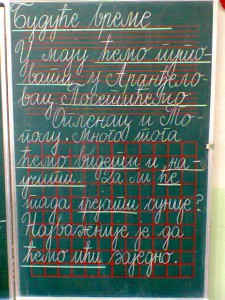 Будуће време
У мају ћемо путо-
вати у Аранђело-
вац. Посетићемо
Опленац и То-
полу. Много тога
ћемо видети и на-
учити. Да ли ће
тада грејати сунце?
Најважније је да
ћемо ићи заједно.